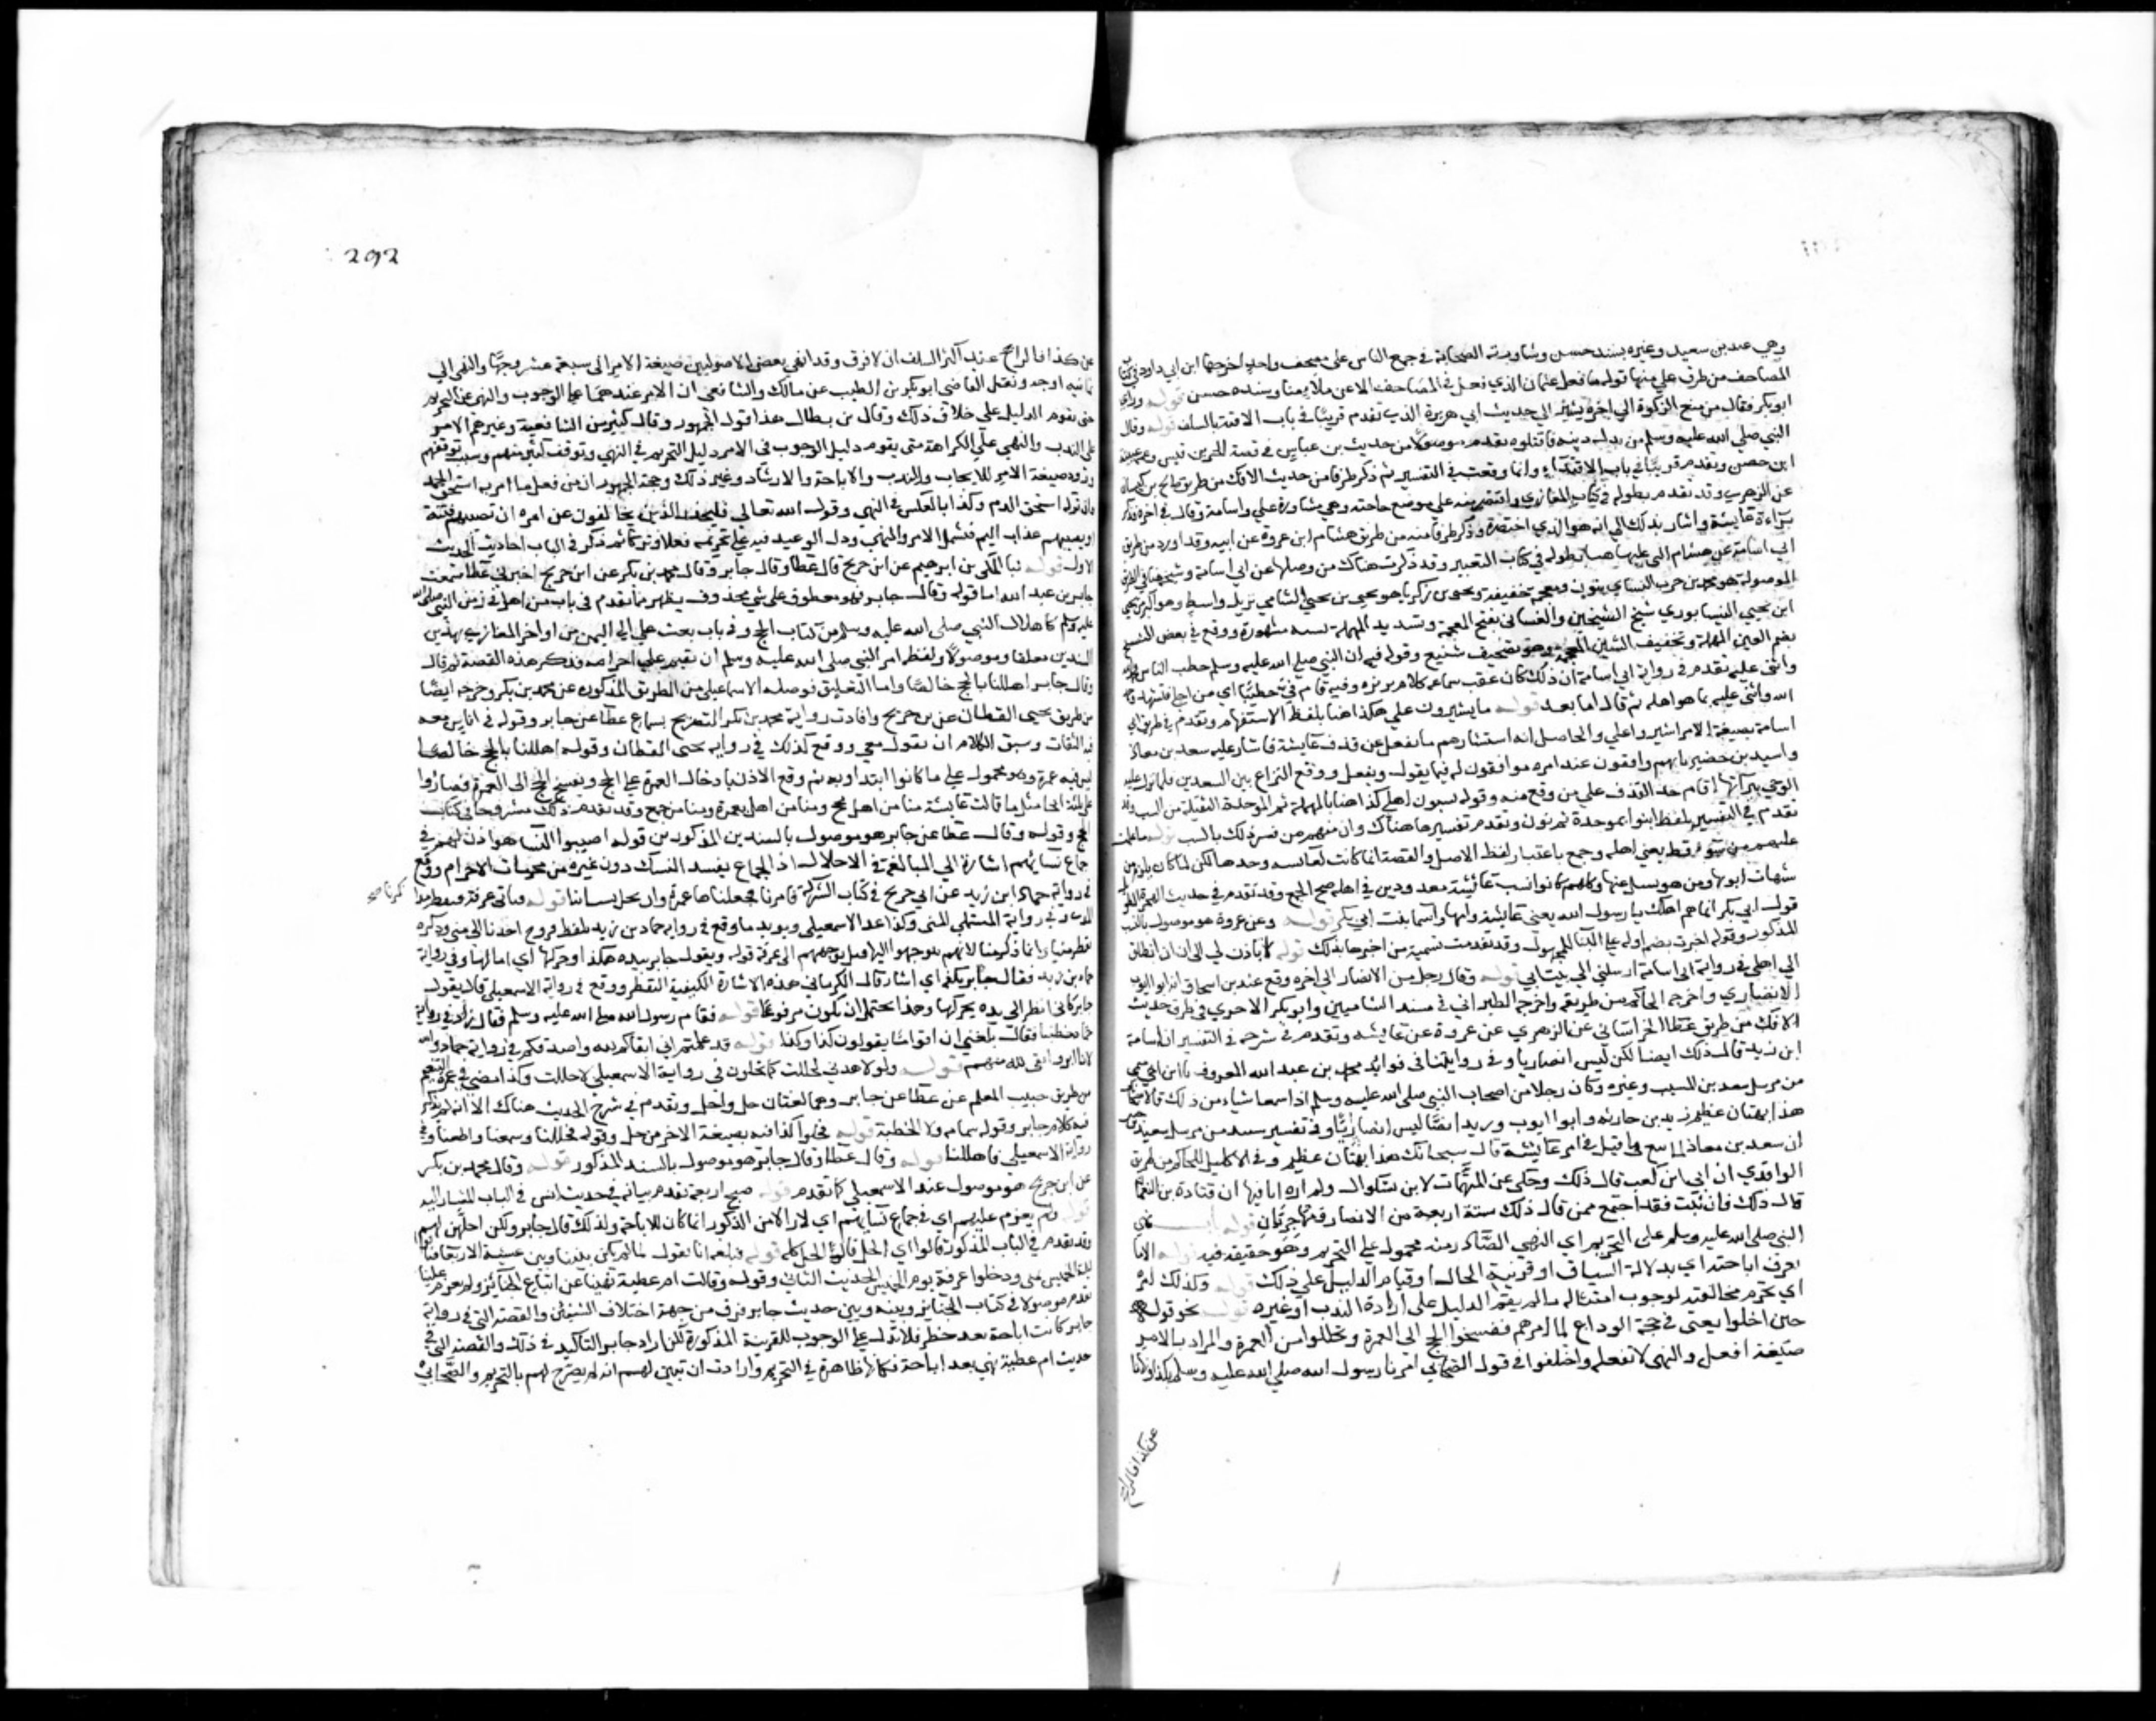 وهي عند بن سعيد وغيره بسند حسن ومشاورته الصحابة في جمع الناس على مصحف واحد اخرجها ابن ابي داود في كتاب
المصاحف من طرق علي منها قوله ما فعل عثمان الذي فعل في المصاحف الا عن ملاء منا وسنده حسن قوله وراي
ابو بكر فقال من منع الزكوة الى اخره يشير الى حديث ابي هريرة الذي تقدم قريبا في باب الاقتدا بالسلف قوله وقال
النبي صلى الله عليه وسلم من بدل دينه فاقتلوه تقدم موصولا من حديث بن عباس في قصة للحر بن قيس وعمه عيينة
ابن حصن وتقدم قريبا في باب الاقتداء وانما وقعت في التفسير ثم ذكر طرفا من حديث الافك من طريق صالح بن كيسان
عن الزهري وقد تقدم بطوله في كتاب المغازي واقتصر منه على موضع حاجته وهي مشاورة علي واسامة وقال في اخره فذكر
براءة عايشة واشار بذلك الى انه هو الذي اختصره وذكر طرفا منه من طريق هشام ابن عروة عن ابيه وقد اورد من طريق
ابي اسامة عن هشام التي علقها هنا بطوله في كتاب التفسير وقد ذكرت هناك من وصلها عن ابي اسامة وشيخه هنا في الطريق
الموصولة هو محمد بن حرب النشاي بنون ومعجمة خفيفة ويحيى بن زكريا هو يحيى بن يحيى الشامي نزيل واسط وهو اكبر من يحيى
ابن يحيى النيسابوري شيخ الشيخين والغساني بفتح المعجمة وتشديد المهملة نسبة مشهورة ووقع في بعض النسخ
بضم العين المهملة وتخفيف الشين المعجمة وهو تصحيف شنيع وقوله فيه ان النبي صلى الله عليه وسلم خطب الناس فحمد الله
واثنى عليه تقدم في رواية ابي اسامة ان ذلك كان عقب سماعه كلام بريرة وفيه قام في خطيبا اي من اجلي فتشهد وحمد
الله واثنى عليه بما هو اهله ثم قال اما بعد قوله ما يشيرون علي هكذا هنا بلفظ الاستفهام وتقدم في طريق ابي
اسامة بصيغة الامر اشيروا علي والحاصل انه استشارهم ما يفعل عن قذف عايشة فاشار عليه سعد بن معاذ
واسيد بن حضير بانهم واقفون عند امره موافقون له فيما يقول ويفعل ووقع النزاع بين السعدين فلما نزل عليه
الوحي ببراتها اقام حد القذف على من وقع منه وقوله يسبون اهلي كذا هنا بالمهملة ثم الموحدة الثقيلة من السب وقد
تقدم في التفسير بلفظ ابنوا بموحدة ثم نون وتقدم تفسيرها هناك وان منهم من فسر ذلك بالسب قوله ما علمت
عليهم من سوء قط يعني اهله وجمع باعتبار لفظ الاصل والقصة انما كانت لعايشة وحدها لكن لما كان يلزم من
سبها سب ابويها ومن هو بسبيل منها وكلهم كانوا بسبب عائشة معدودين في اهله صح الجمع وقد تقدم في حديث الهجرة الطويل
قول ابي بكر انما هم اهلك يا رسول الله يعني عايشة وامها واسما بنت ابي بكر قوله وعن عروة هو موصول بالسند
المذكور وقوله اخبرت بضم اوله على البنا للمجهول وقد تقدمت تسمية من اخبرها بذلك قوله اتاذن لي الى ان انطلق
الى اهلي في رواية ابي اسامة ارسلني الى بيت ابي قوله وقال رجل من الانصار الى اخره وقع عند بن اسحاق انه ابو ايوب
الانصاري واخرجه الحاكم من طريقه واخرجه الطبراني في مسند الشاميين وابو بكر الاجري في طرق حديث
الافك من طريق عطا الخراساني عن الزهري عن عروة عن عايشه وتقدم في شرحه في التفسير ان اسامة
ابن زيد قال ذلك ايضا لكن ليس انصاريا وفي روايتنا في فوائد محمد بن عبد الله المعروف بابن اخي ميمي
من مرسل سعيد بن المسيب وغيره وكان رجلان من اصحاب النبي صلى الله عليه وسلم اذا سمعا شياء من ذلك قالا سبحانك
هذا بهتان عظيم زيد بن حارثه وابو ايوب وزيد ايضا ليس انصاريا وفي تفسير سنيد من مرسل سعيد بن جبير
ان سعد بن معاذ لما سمع ما قيل في امر عايشة قال سبحانك هذا بهتان عظيم وفي الاكليل للحاكم من طريق
الواقدي ان ابي ابن كعب قال ذلك وحكي عن المبهمات لابن بشكوال ولم اره انا فيها ان قتادة بن النعمان
قال ذلك فان ثبت فقد اجتمع ممن قال ذلك ستة اربعة من الانصار ومهاجريان قوله باب نهي
النبي صلى الله عليه وسلم على التحريم اي النهي الصادر منه محمول على التحريم وهو حقيقة فيه قوله الا ما
تعرف اباحته اي بدلالة السياق او قرينة الحال او قيام الدليل على ذلك قوله وكذلك امره
اي تحرم مخالفته لوجوب امتثاله ما لم يقم الدليل على ارادة الندب او غيره قوله نحو قوله
حين احلوا يعني في حجة الوداع لما امرهم ففسخوا الحج الى العمرة وتحللوا من العمرة والمراد بالامر
صيغة افعل والنهي لا تفعل واختلفوا في قول الصحابي امرنا رسول الله صلى الله عليه وسلم بكذا او نهانا
عن كذا فالراجح
292
عن كذا فالراجح عند اكثر السلف ان لا فرق وقد انهى بعض الاصوليين صيغة الامر الى سبعة عشر وجها والنهي الى
ثمانية اوجه ونقل القاضي ابو بكر بن الطيب عن مالك والشافعي ان الامر عندهما على الوجوب والنهي على التحريم
حتى يقوم الدليل على خلاف ذلك وقال بن بطال هذا قول الجمهور وقال كثير من الشافعية وغيرهم الامر
على الندب والنهي على الكراهة حتى يقوم دليل الوجوب في الامر ودليل التحريم في النهي وتوقف كثير منهم وسبب توقفهم
ورود صيغة الامر للايجاب والندب والاباحة والارشاد وغير ذلك وحجة الجمهور ان من فعل ما امر به استحق الحمد
وان تركه استحق الذم وكذا بالعكس في النهي وقول الله تعالى فليحذر الذين يخالفون عن امره ان تصيبهم فتنة
او يصيبهم عذاب اليم فشمل الامر والنهي ودل الوعيد فيه على تحريمه فعلا وتركا ثم ذكر في الباب احاديث الحديث
الاول قوله نبا المكي بن ابرهيم عن ابن جريج قال عطا وقال جابر وقال محمد بن بكر عن ابن جريج اخبرني عطا سمعت
جابر بن عبد الله اما قوله وقال جابر فهو معطوف على شي محذوف يظهر مما تقدم في باب من اهل في زمن النبي صلى الله
عليه وسلم كاهلال النبي صلى الله عليه وسلم من كتاب الحج وفي باب بعث علي الى اليمن من اواخر المغازي بهذين
السندين معلقا وموصولا ولفظه امر النبي صلى الله عليه وسلم ان يقيم على احرامه فذكر هذه القصة ثم قال
وقال جابر اهللنا بالحج خالصا واما التعليق فوصله الاسماعيلي من الطريق المذكوره عن محمد بن بكر وخرجه ايضا
من طريق يحيى القطان عن بن جريج وافادت رواية محمد بن بكر التصريح بسماع عطا عن جابر وقوله في اناس معه
فيه التفات وسبق الكلام ان يقول معي ووقع كذلك في رواية يحيى القطان وقوله اهللنا بالحج خالصا
ليس معه عمرة وهو محمول على ما كانوا ابتداوا به ثم وقع الاذن بادخال العمرة على الحج وبفسخ الحج الى العمرة فصاروا
على ثلثة انحا مثل ما قالت عايشة منا من اهل بحج ومنا من اهل بعمرة ومنا من جمع وقد تقدم ذلك مشروحا في كتاب
الحج وقوله وقال عطا عن جابر هو موصول بالسندين المذكورين قوله اصيبوا النسا هو اذن لهم في
جماع نسائهم اشارة الى المبالغة في الاحلال اذ الجماع يفسد النسك دون غيره من محرمات الاحرام ووقع
في رواية حماد ابن زيد عن ابن جريج في كتاب الشركة فامرنا فجعلناها عمرة وان نحل الى نسائنا قوله فناتي عرفة تقطر مذا
كيرنا صح
المذي في رواية المستملي المني وكذا عند الاسمعيلي ويويده ما وقع في رواية حماد بن زيد بلفظ فيروح احدنا الى منى وذكره
يقطر منيا وانما ذكر منا لانهم يتوجهوا اليها قبل توجههم الى عرفة قوله ويقول جابر بيده هكذا وحركها اي امالها وفي رواية
حماد بن زيد فقال جابر بكفه اي اشار قال الكرماني هذه الاشارة لكيفية التقطر ووقع في رواية الاسمعيلي قال يقول
جابر كاني انظر الى يده يحركها وهذا يحتمل ان يكون مرفوعا قوله فقام رسول الله صلى الله عليه وسلم فقال زاد في رواية
حماد خطيبا فقال بلغني ان اقواما يقولون كذا وكذا قوله قد علمتم اني اتقاكم لله واصدقكم في رواية حماد والله
لانا ابر واتقى لله منهم قوله ولولا هديي لحللت كما تحلون في رواية الاسمعيلي لاحللت وكذا مضى في عمرة التنعيم
من طريق حبيب المعلم عن عطا عن جابر وهما لغتان حل واحل وتقدم في شرح الحديث هناك الا انه لم يذكر
فيه كلام جابر وقوله بتمامه ولا الخطبة قوله فحلوا كذا فيه بصيغة الامر من حل وقوله فحللنا وسمعنا واطعنا وفي
رواية الاسمعيلي فاهللنا قوله وقال عطا وقال جابر هو موصول بالسند المذكور قوله وقال محمد بن بكر
عن ابن جريج هو موصول عند الاسمعيلي كما تقدم قوله صبح رابعة تقدم بيانه في حديث انس في الباب المشار اليه
قوله ولم يعزم عليهم اي في جماع نسائهم اي لان الامر المذكور انما كان للاباحة ولذلك قال جابر ولكن احلهن لهم
وقد تقدم في الباب المذكور قالوا اي الحل قال الحل كله قوله فبلغه انا نقول لما لم يكن بيننا وبين عشية الا ربعا قالوا
ليلة الخميس بمنى ودخلوا عرفة يوم الخميس الحديث الثاني وقوله وقالت ام عطية نهينا عن اتباع الجنائز ولم يعزم علينا
تقدم موصولا في كتاب الجنائز وبينه وبين حديث جابر فرق من جهة اختلاف السببين والقصة التي في رواية
جابر كانت اباحة بعد حظر فلا تدل على الوجوب للقرينة المذكورة لكن اراد جابر التاكيد في ذلك والقصة التي في
حديث ام عطية نهي بعد اباحة فكان ظاهرا في التحريم وارادت ان تبين لهم انه لم يصرح لهم بالتحريم والصحابي